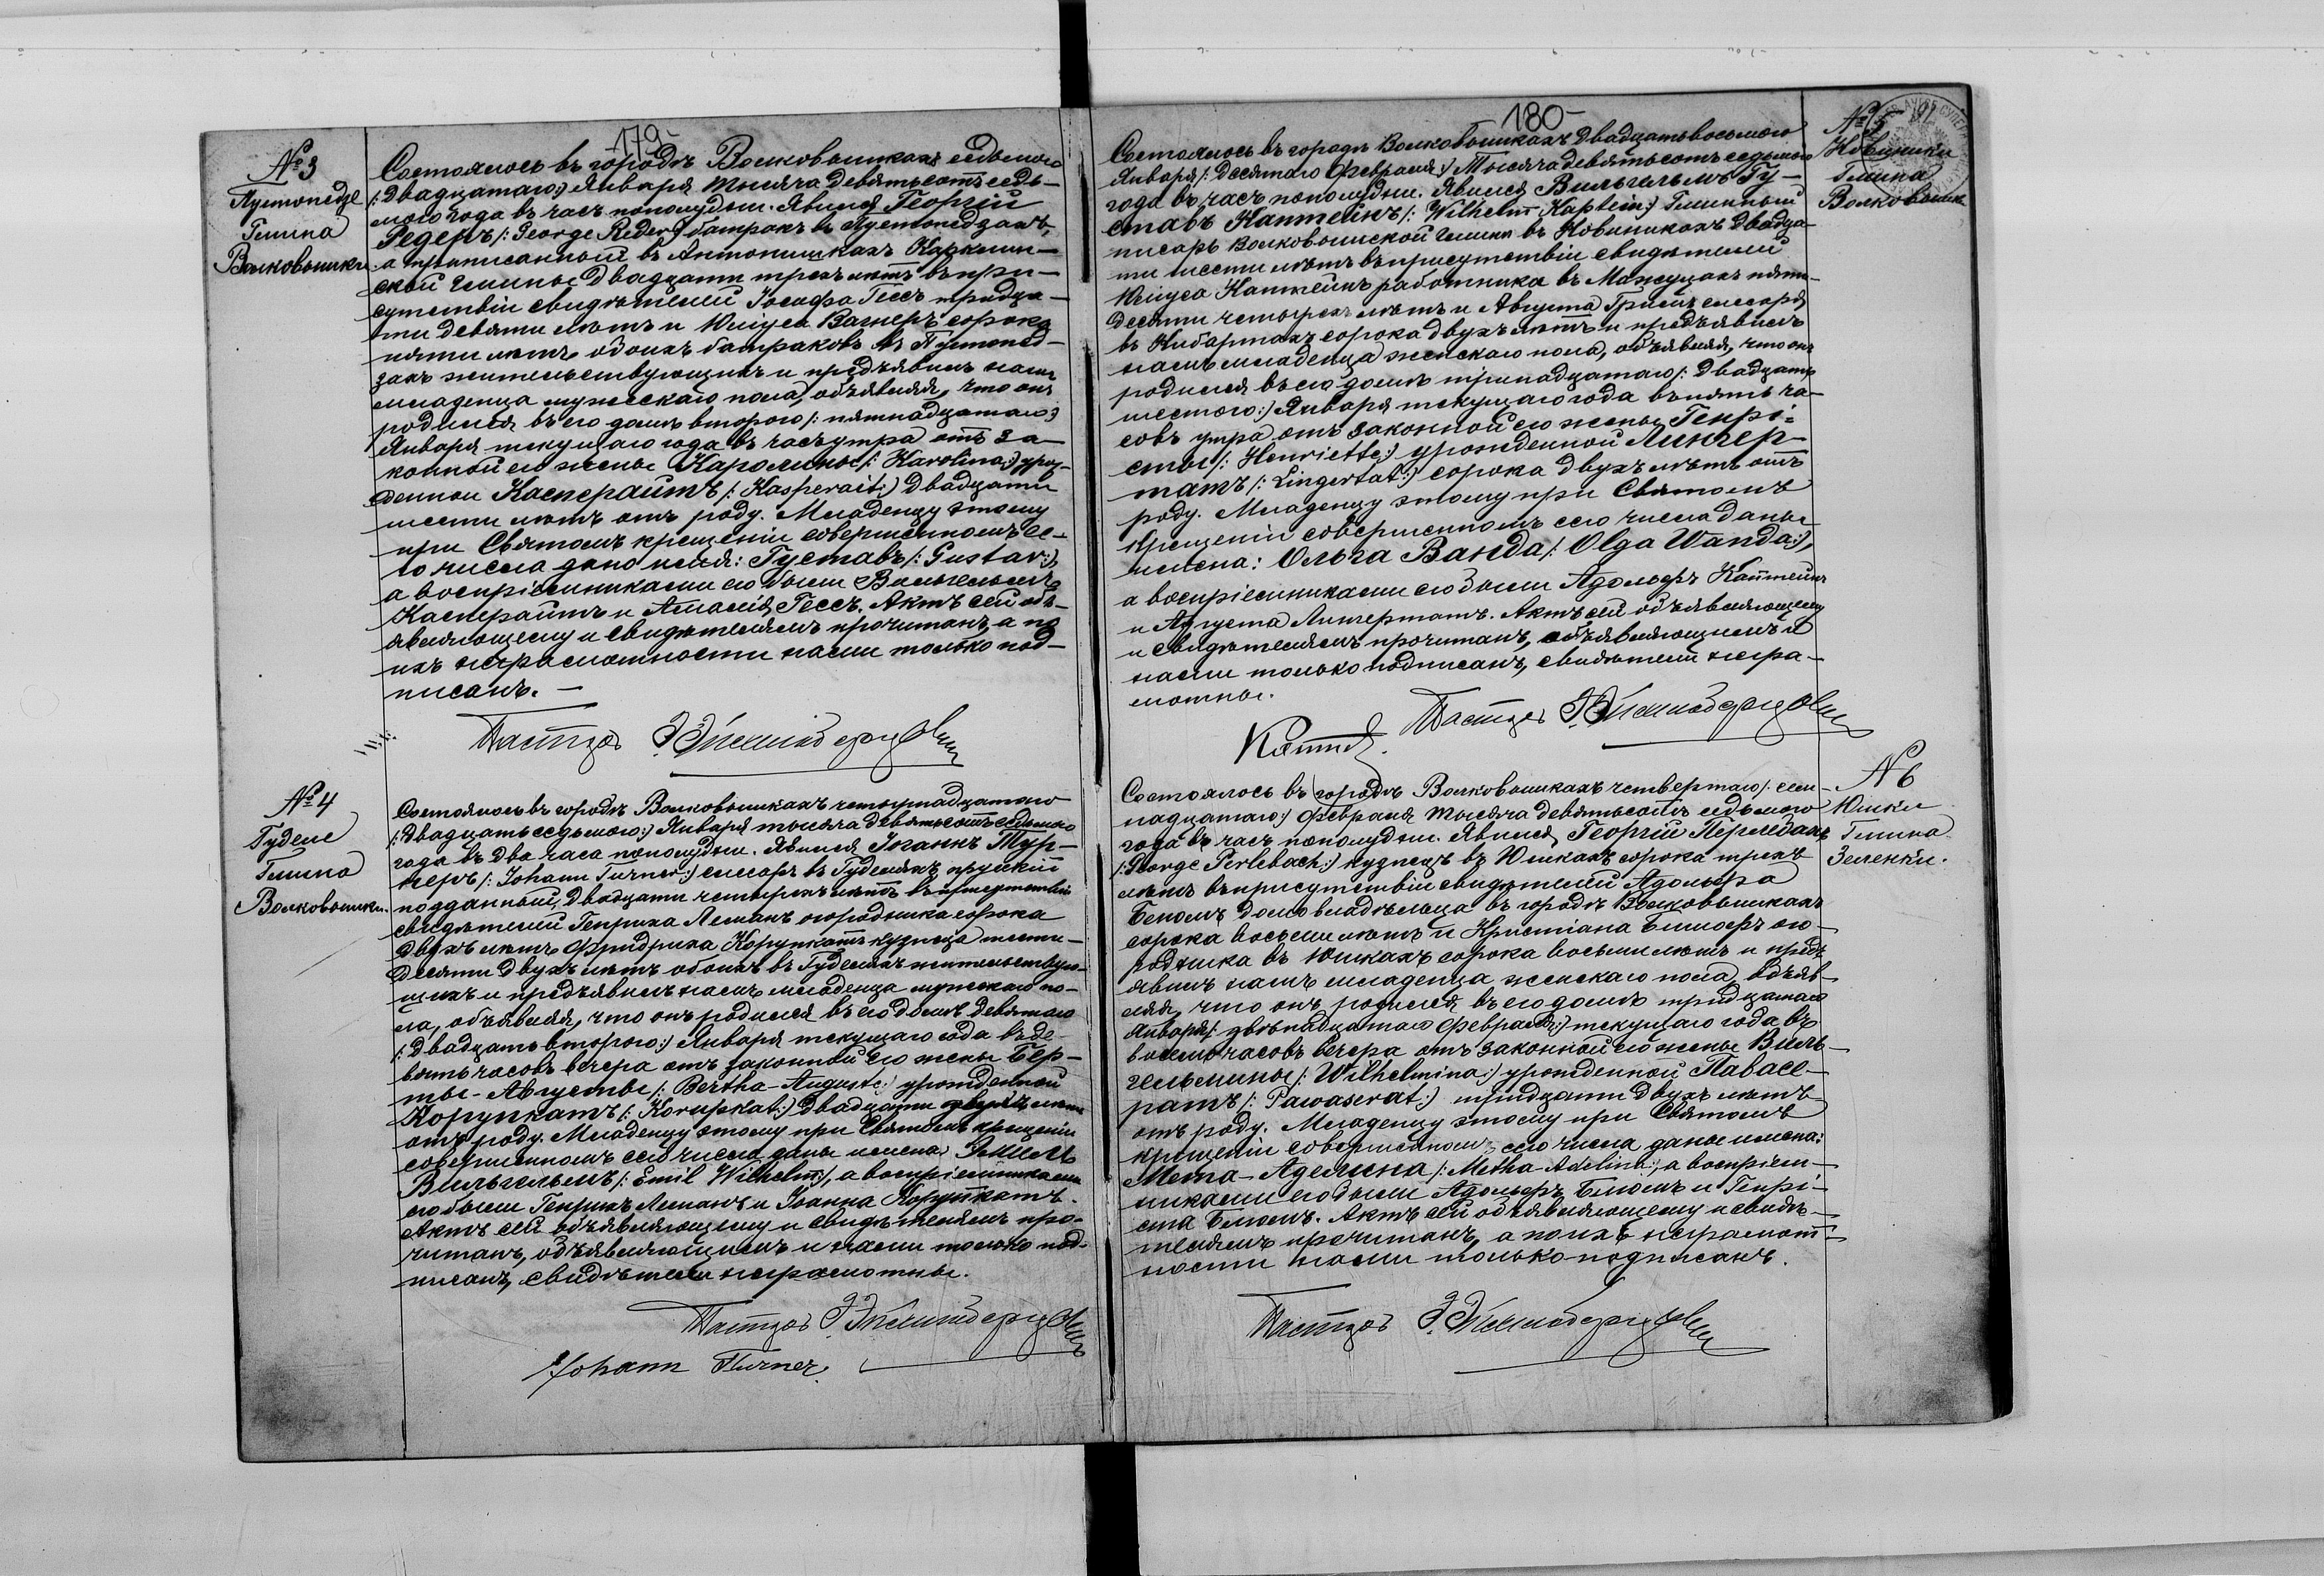 179-
№ 3
Пустопедзе
Гмина
Волковышки.
Состоялось въ городѣ Волковышкахъ седьмого
/:Двадцатаго:/ Января тысяча девятьсотъ седь-
мого года въ часъ пополудни. Явился Георгій
Редеръ /:George Reder:/ батракъ въ Пустопедзахъ,
а приписанный въ Антонишкахъ
ской гмины Двадцати трехъ лѣтъ въ при-
сутствіи свидѣтелей Іосифа Гессъ тридца-
ти девяти лѣтъ и Юліуса Вагнеръ сорока
пяти лѣтъ обоихъ батраковъ въ Пустопед-
захъ жительствующихъ и предъявилъ намъ
младенца мужескаго пола, объявляя, что онъ
родился въ его домѣ второго /:пятнадцатаго:/
Января текущаго года въ часъ утра отъ за-
конной его жены Каролины /:Karolina:/ урож-
денной Касперайтъ /:Kasperait:/ Двадцати
шести лѣтъ отъ роду. Младенцу этому
при Святомъ крещеніи совершенномъ се-
го числа дано имя: Густавъ /:Gustav:/,
а воспріемниками его были Вильгельмъ
Касперайтъ и Амалія Гессъ. Актъ сей объ-
являющему и свидѣтелямъ прочитанъ, а по
ихъ неграмотности нами только под-
писанъ. —
Пасторъ
№ 4
Гудели
Гмина
Волковышки.
Состоялось въ городѣ Волковышкахъ четырнадцатаго
/:Двадцать седьмого:/ Января тысяча девятьсотъ седьмого
года въ два часа пополудни. Явился Іоганнъ Тур-
неръ /:Johann Turner:/ слесарь въ Гуделяхъ прускій
подданный, Двадцати четырехъ лѣтъ въ присутствіи
свидѣтелей Генриха Леманъ огородника сорока
двухъ лѣтъ Фридриха Корупкатъ кузнеца шести-
десяти двухъ лѣтъ обоихъ въ Гуделяхъ жительствую-
щихъ и предъявилъ намъ младенца мужескаго по-
ла, объявляя, что онъ родился въ его домѣ девятаго
/:Двадцать второго:/ Января текущаго года въ де-
вять часовъ вечера отъ законной его жены Бер-
ты-Августы /:Bertha-Auguste:/ урожденной
Корупкатъ /:Korupkat:/ Двадцати лѣтъ
отъ роду. Младенцу этому при Святомъ крещеніи
совершенномъ сего числа даны имена: Эмиль
Вильгельмъ /:Emil Wilhelm:/, а воспріемниками
его были Генрихъ Леманъ и Іоанна Корупкатъ.
Актъ сей объявляющему и свидѣтелямъ про-
читанъ, объявляющимъ и нами только под-
писанъ, свидѣтели неграмотны.
Пасторъ
Johann Turner.
180-
№ 5
Новиники
Гмина
Волковышк
Состоялось въ городѣ Волковышкахъ Двадцать восьмого
Января /:Десятаго Февраля:/ Тысяча девятьсотъ седьмого
года въ часъ пополудни. Явился Вильгельмъ Гу-
ставъ Каптейнъ /:Wilhelm Kaptein:/ Гминный
писарь Волковышской гмины въ Новиникахъ Двадца-
ти шести лѣтъ въ присутствіи свидѣтелей
Юліуса Каптейнъ работника въ Мажуцахъ пяти-
десяти четырехъ лѣтъ и Августа слесаря
въ Кибартахъ сорока двухъ лѣтъ и предъявилъ
намъ младенца женскаго пола, объявляя, что онъ
родился въ его домѣ тринадцатаго /:Двадцать
шестого:/ Января текущаго года въ пять ча-
совъ утра отъ законной его жены Генрі-
еты /:Henriette:/ урожденной Лингер-
татъ /:Lingertat:/ сорока двухъ лѣтъ отъ
роду. Младенцу этому при Святомъ
крещеніи совершенномъ сего числа даны
имена: Ольга Ванда /:Olga Wanda:/,
а воспріемниками его были Адольфъ Каптейнъ
и Августа Лингертатъ. Актъ сей объявляющему
и свидѣтелямъ прочитанъ, объявляющимъ и
нами только подписанъ, свидѣтели негра-
мотны.
Пасторъ
№ 6
Юшки
Гмина
Зеленки.
Состоялось въ городѣ Волковышкахъ четвертаго /:сем-
надцатаго:/ Февраля тысяча девятьсотъ седьмого
года въ часъ пополудни. Явился Георгій Перлебахъ
/:George Perlebach:/ кузнецъ въ Юшкахъ сорока трехъ
лѣтъ въ присутствіи свидѣтелей Адольфа
Блюмъ домовладѣльца въ городѣ Волковышкахъ
сорока восьми лѣтъ и Христіана ого-
родника въ Юшкахъ сорока восьми лѣтъ и предъ-
явилъ намъ младенца женскаго пола, объяв-
ляя, что онъ родился въ его домѣ тридцатаго
Января /:двѣнадцатаго Февраля:/ текущаго года въ
восемь часовъ вечера отъ законной его жены Виль-
гельмины /:Wilhelmina:/ урожденной Павасе-
ратъ /:Pawaserat:/ тридцати двухъ лѣтъ
отъ роду. Младенцу этому при Святомъ
крещеніи совершенномъ сего числа даны имена:
Мета-Аделина /:Metha-Adelina:/, а воспріем-
никами его были Адольфъ Блюмъ и Генрі-
ета Блюмъ. Актъ сей объявляющему и свидѣ-
телямъ прочитанъ, а по ихъ неграмот-
ности нами только подписанъ.
Пасторъ